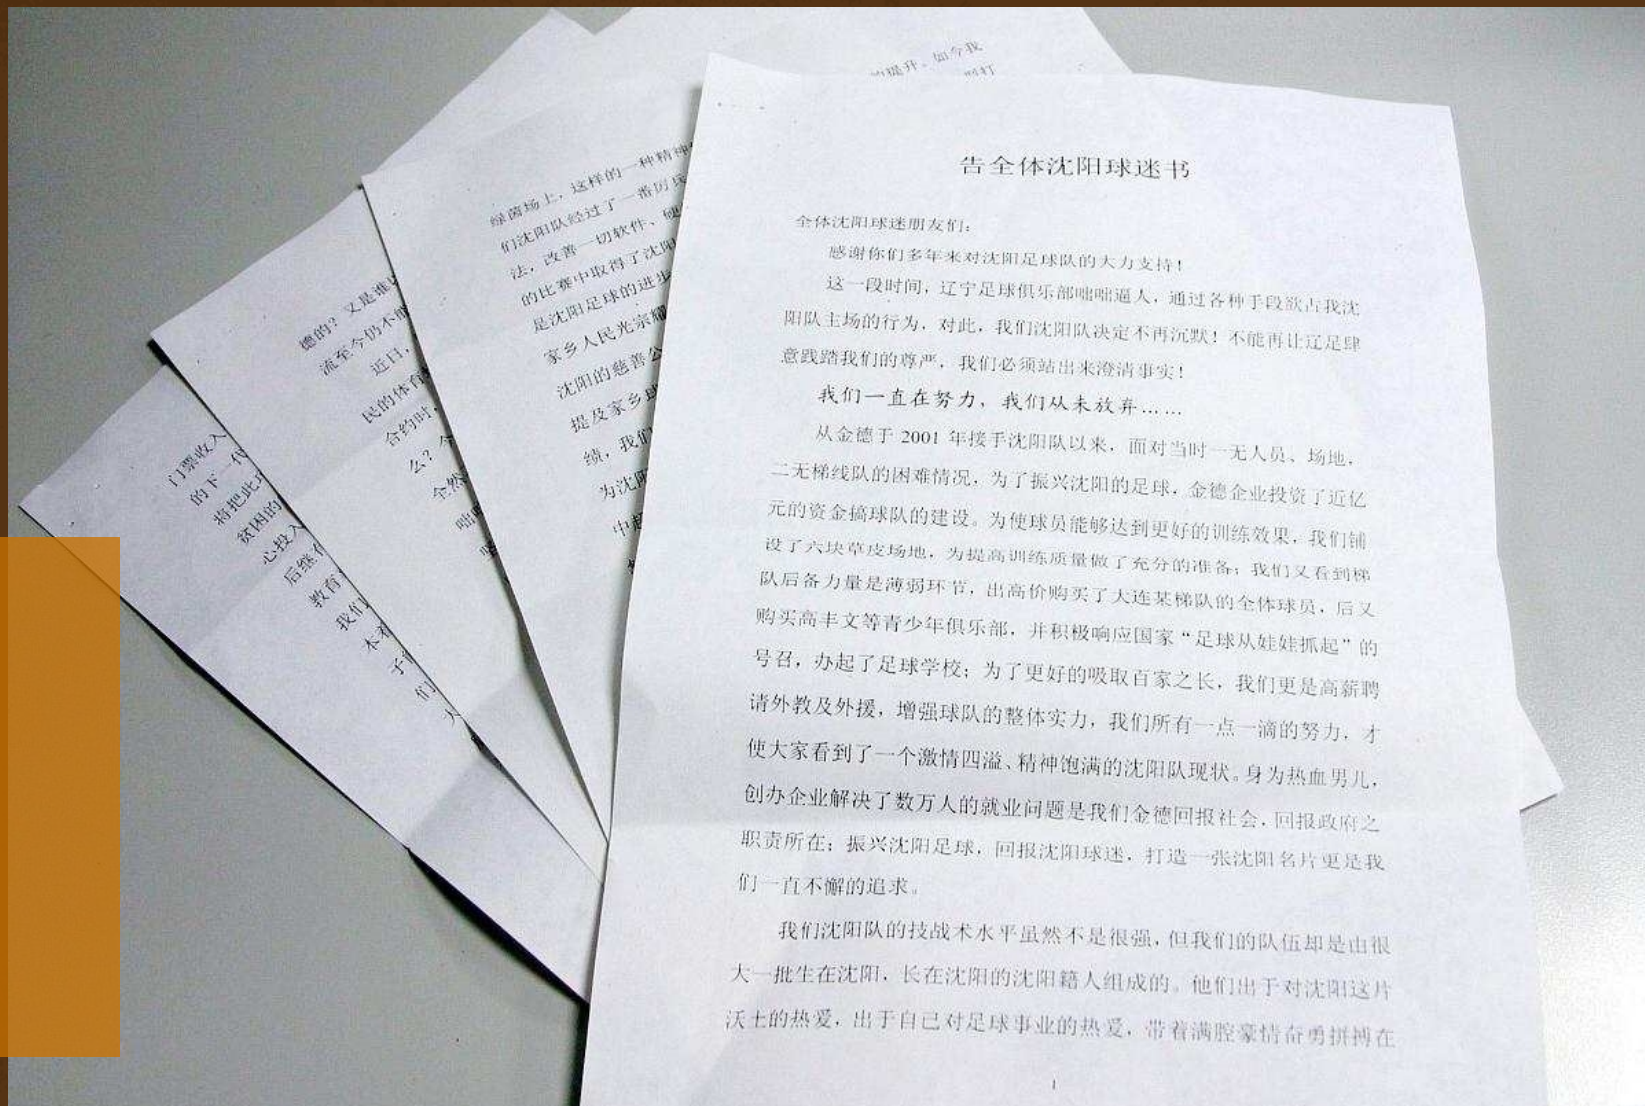 告全体沈阳球迷书
全体沈阳球迷朋友们：
感谢你们多年来对沈阳足球队的大力支持！
这一段时间，辽宁足球俱乐部咄咄逼人，通过各种手段欲占我沈
阳队主场的行为．对此，我们沈阳队决定不再沉默！不能再让辽足肆
意践踏我们的尊严，我们必须站出来澄清事实！
我们一直在努力，我们从未放弃……
从金德于 2001 年接手沈阳队以来，面对当时一无人员、场地，
二无梯线队的困难情况，为了振兴沈阳的足球，金德企业投资了近亿
元的资金搞球队的建设。为使球员能够达到更好的训练效果，我们铺
设了六块草皮场地，为提高训练质量做了充分的准备；我们又看到梯
队后备力量是薄弱环节，出高价购买了大连某梯队的全体球员，后又
购买高丰文等青少年俱乐部，并积极响应国家“足球从娃娃抓起”的
号召，办起了足球学校；为了更好的吸取百家之长，我们更是高薪聘
请外教及外援，增强球队的整体实力，我们所有一点一滴的努力，才
使大家看到了一个激情四溢、精神饱满的沈阳队现状。身为热血男儿，
创办企业解决了数万人的就业问题是我们金德回报社会，回报政府之
职责所在；振兴沈阳足球，回报沈阳球迷，打造一张沈阳名片更是我
们一直不懈的追求。
我们沈阳队的技战术水平虽然不是很强，但我们的队伍却是由很
大一批生在沈阳，长在沈阳的沈阳籍人组成的。他们出于对沈阳这片
沃土的热爱，出于自己对足球事业的热爱，带着满腔豪情奋勇拼搏在
1
的提升。如今我
绿茵场上，这样的一种精神
们沈阳队经过了一番厉兵
法，改善一切软件、硬
的比赛中取得了沈阳
是沈阳足球的进步
家乡人民光宗耀
沈阳的慈善公
提及家乡球
绩，我们
为沈阳
中超
德的？又是谁
流至今仍不能
近日，
民的体育
合约时，
么？今
全然
咄咄
门票收入
的下一代
将把此
贫困的
心投入
后继
教育
我们
本着
子
们
人